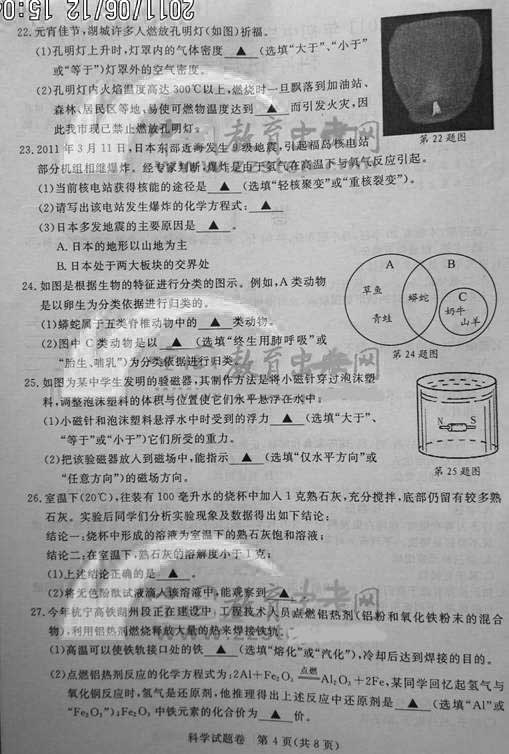 2011/06/12 15:04
22.元宵佳节,湖城许多人燃放孔明灯(如图)祈福。
(1)孔明灯上升时,灯罩内的气体密度 ▲ (选填“大于”、“小于”
或“等于”)灯罩外的空气密度。
(2)孔明灯内火焰温度高达300℃以上,燃烧时一旦飘落到加油站、
森林、居民区等地,易使可燃物温度达到 ▲ 而引发火灾,因
此我市现已禁止燃放孔明灯。
第22题图
23.2011年3月11日,日本东部近海发生9级地震,引起福岛核电站
部分机组相继爆炸。经专家判断,爆炸是由于氢气在高温下与氧气反应引起。
(1)当前核电站获得核能的途径是 ▲ (选填“轻核聚变”或“重核裂变”)。
(2)请写出该电站发生爆炸的化学方程式: ▲
(3)日本多发地震的主要原因是 ▲ 。
A.日本的地形以山地为主
B.日本处于两大板块的交界处
24.如图是根据生物的特征进行分类的图示。例如,A类动物
是以卵生为分类依据进行归类的。
(1)蟒蛇属于五类脊椎动物中的 ▲ 类动物。
(2)图中C类动物是以 ▲ (选填“终生用肺呼吸”或
“胎生、哺乳”)为分类依据进行归类。
A
B
草鱼
青蛙
蟒蛇
C
奶牛
山羊
第24题图
25.如图为某中学生发明的验磁器,其制作方法是将小磁针穿过泡沫塑
料,调整泡沫塑料的体积与位置使它们水平悬浮在水中。
(1)小磁针和泡沫塑料悬浮水中时受到的浮力 ▲ (选填“大于”、
“等于”或“小于”)它们所受的重力。
(2)把该验磁器放人到磁场中,能指示 ▲ (选填“仅水平方向”或
“任意方向”)的磁场方向。
N
S
第25题图
26.室温下(20℃),往装有100毫升水的烧杯中加人1克熟石灰,充分搅拌,底部仍留有较多熟
石灰。实验后同学们分析实验现象及数据得出如下结论:
结论一:烧杯中形成的溶液为室温下的熟石灰饱和溶液;
结论二:在室温下,熟石灰的溶解度小于1克;
(1)上述结论正确的是 ▲ 。
(2)将无色酚酞试液滴人该溶液中,能观察到 ▲
27.今年杭宁高铁湖州段正在建设中,工程技术人员点燃铝热剂(铝粉和氧化铁粉末的混合
物),利用铝热剂燃烧释放大量的热来焊接铁轨。
(1)高温可以使铁轨接口处的铁 ▲ (选填“熔化”或“汽化”),冷却后达到焊接的目的。
(2)点燃铝热剂反应的化学方程式为:2Al+Fe₂O₃ 点燃 Al₂O₃+2Fe,某同学回忆起氢气与
氧化铜反应时,氢气是还原剂,他推理得出上述反应中还原剂是 ▲ (选填“Al”或
“Fe₂O₃”);Fe₂O₃中铁元素的化合价为 ▲ 价。
科学试题卷 第4页(共8页)